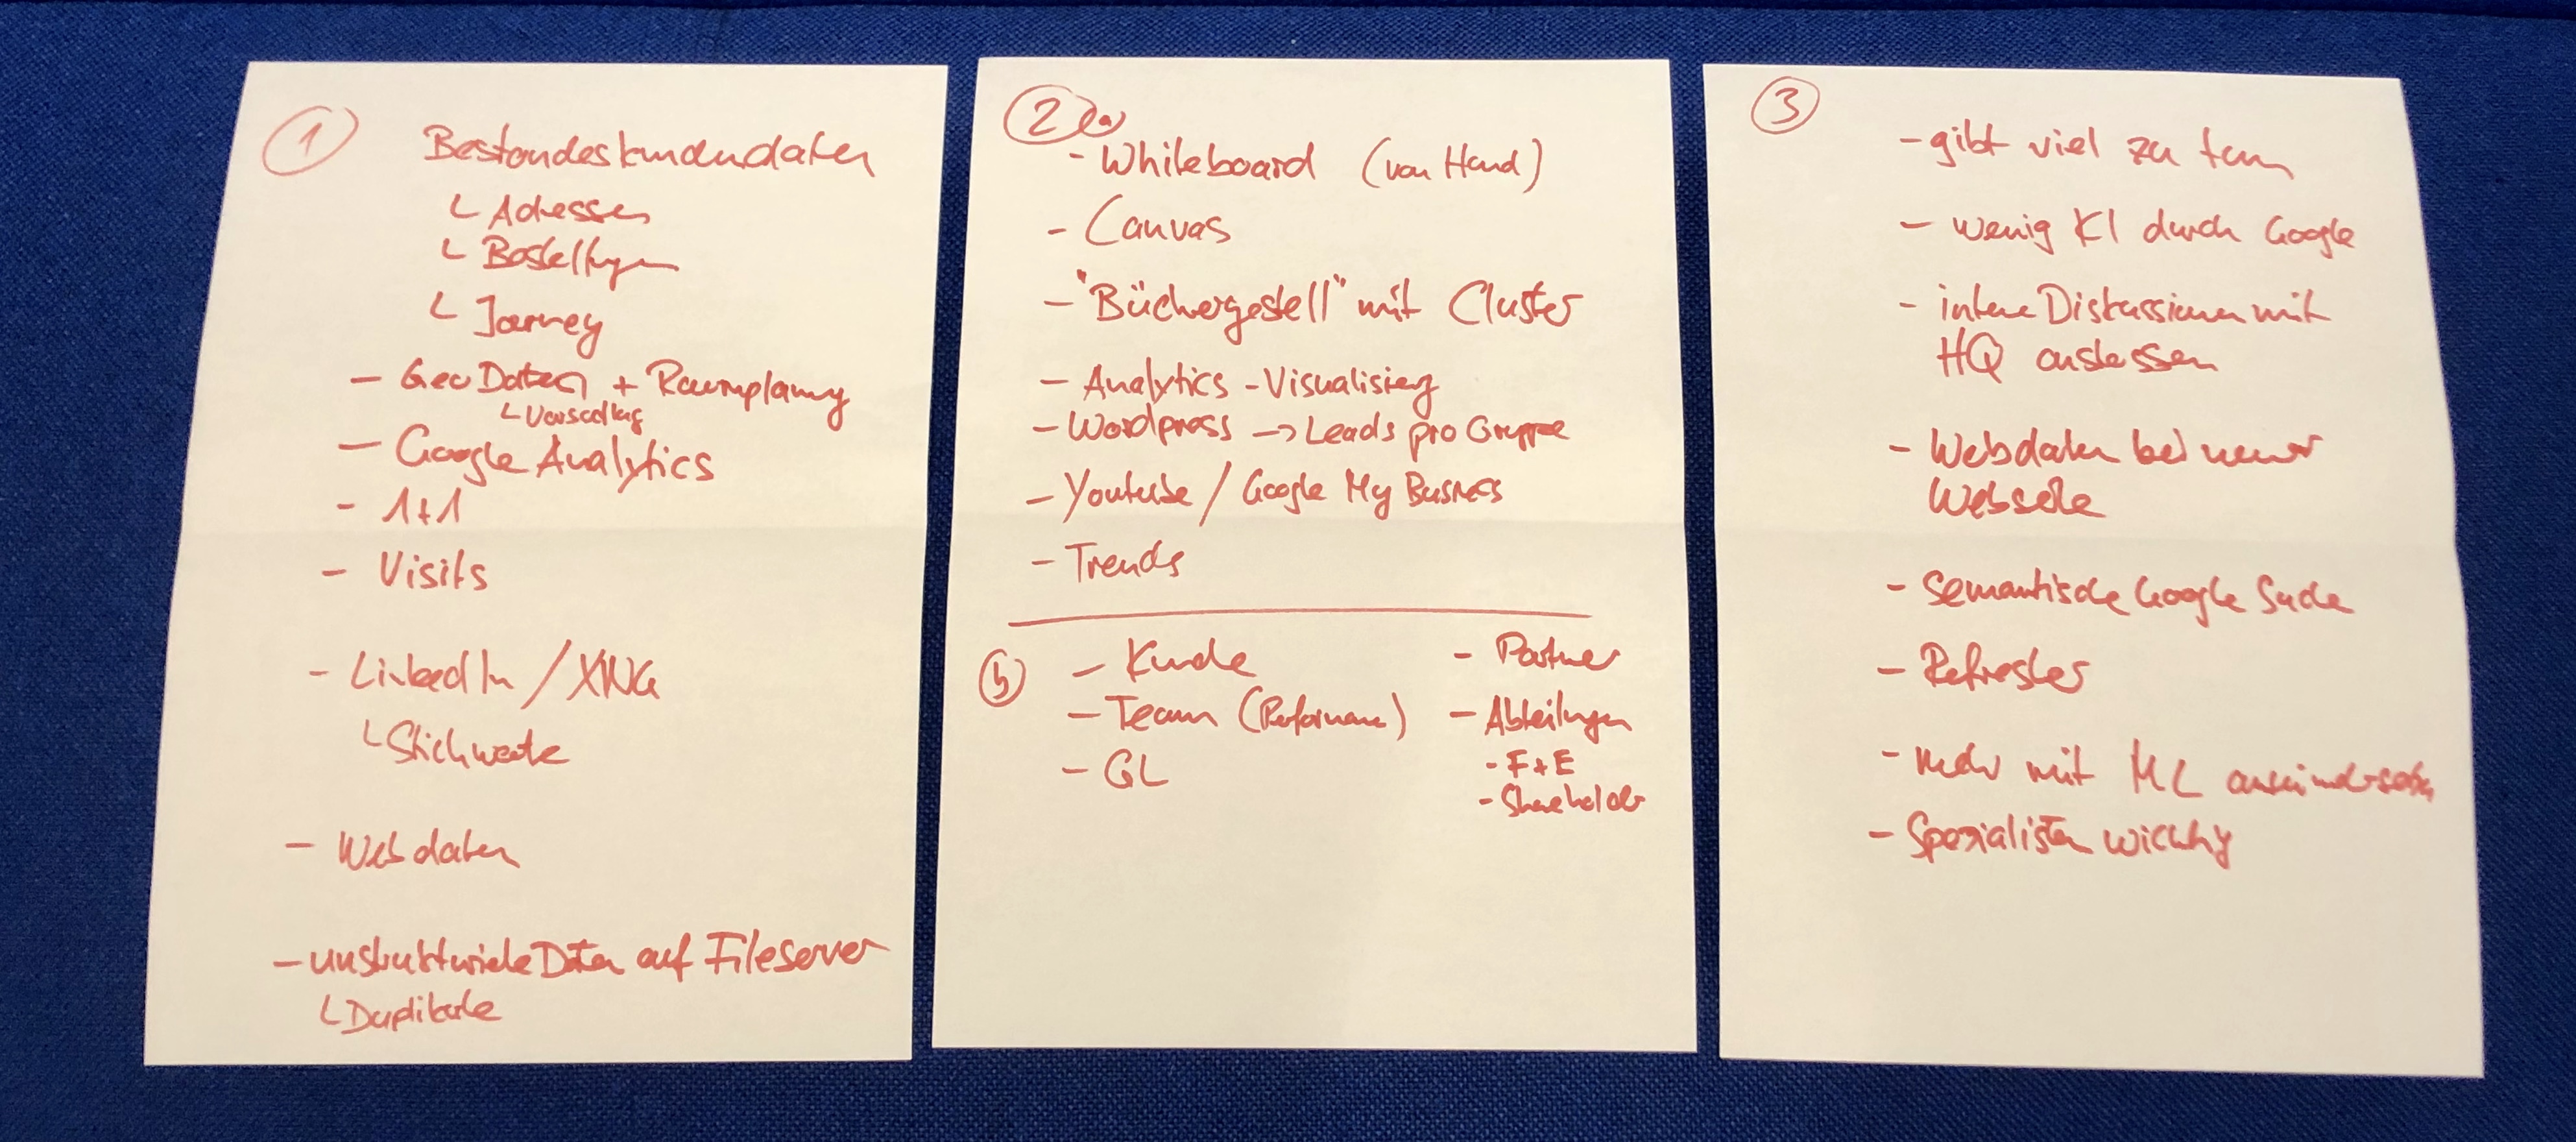 1
Bestandeskundendaten
└ Adressen
└ Bestellungen
└ Journey
- Geo Daten + Raumplanung
- Google Analytics
- 1+1
- Visits
- LinkedIn / XING
└ Stichworte
- Webdaten
- unstrukturierte Daten auf Fileserver
└ Duplikate
2 a
- Whiteboard (von Hand)
- Canvas
- "Büchergestell" mit Cluster
- Analytics - Visualisierg
- Wordpress -> Leads pro Gruppe
- Youtube / Google My Business
- Trends
b
- Kunde
- Team (Performance)
- GL
- Partner
- Abteilungen
- F+E
- Shareholder
3
- gibt viel zu tun
- wenig KI durch Google
- interne Diskussionen mit
HQ auslassen
- Webdaten bei neuer
Webseite
- Semantische Google Suche
- Refresher
- mehr mit ML auseinandersetzen
- Spezialisten wichtig